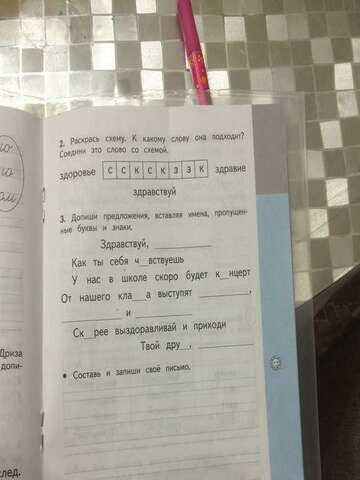 2. Раскрась схему. К какому слову она подходит?
Соедини это слово со схемой.
здоровье С С К С К З З К здравие
здравствуй
3. Допиши предложения, вставляя имена, пропущен-
ные буквы и знаки.
Здравствуй, ________
Как ты себя ч_вствуешь
У нас в школе скоро будет к_нцерт
От нашего кла__а выступят ________,
________ и ________
Ск_рее выздоравливай и приходи
Твой дру_, ________
• Составь и запиши своё письмо.
Дриза
допи-
след.